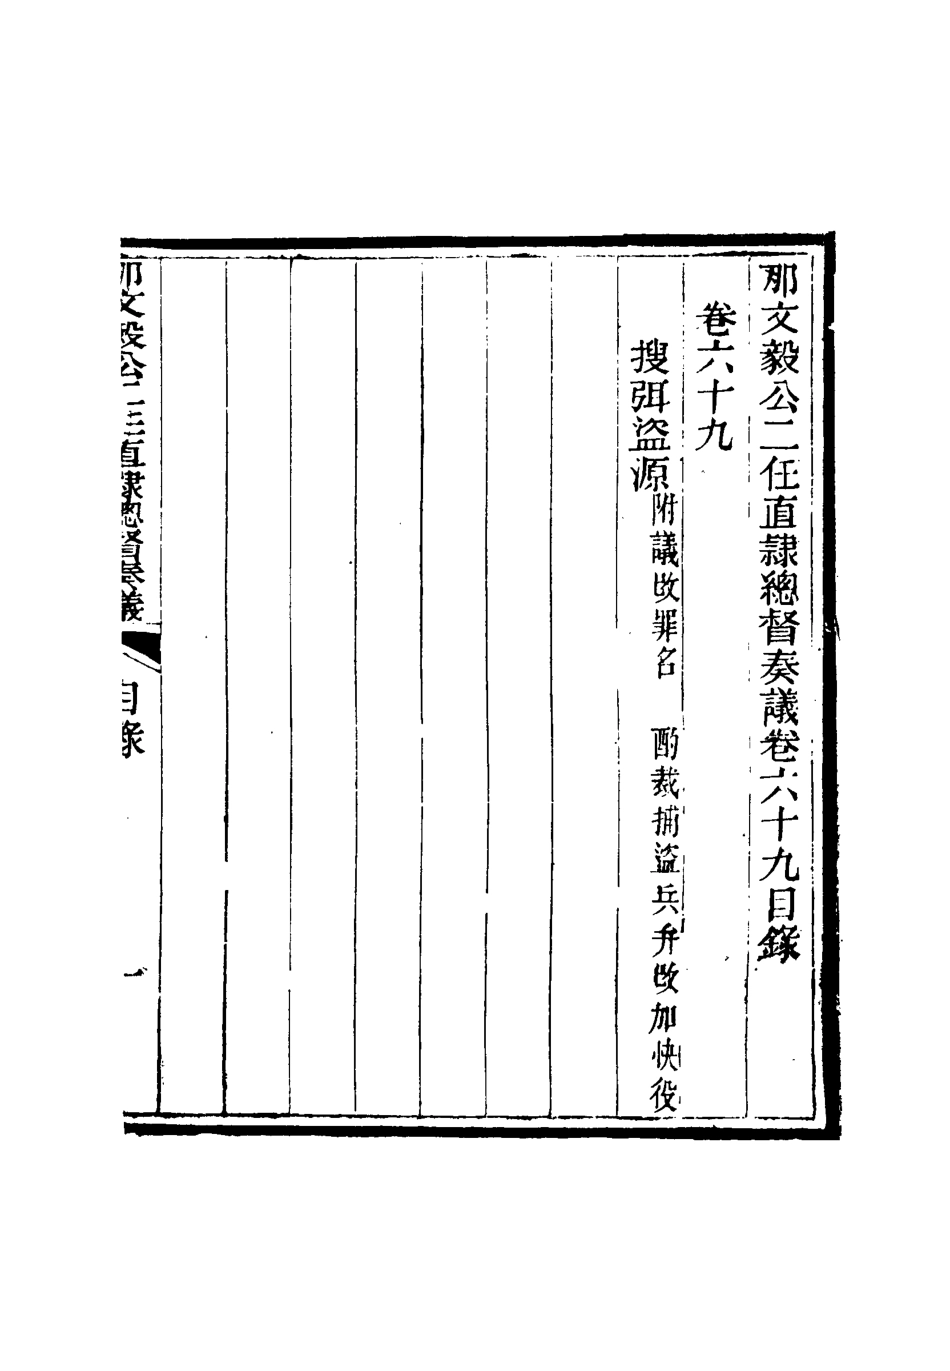 那文毅公二任直隸總督奏議卷六十九目錄
卷六十九
搜弭盜源附議改罪名　酌裁捕盜兵弁改加快役
那文毅公二任直隸總督奏議　目錄　一